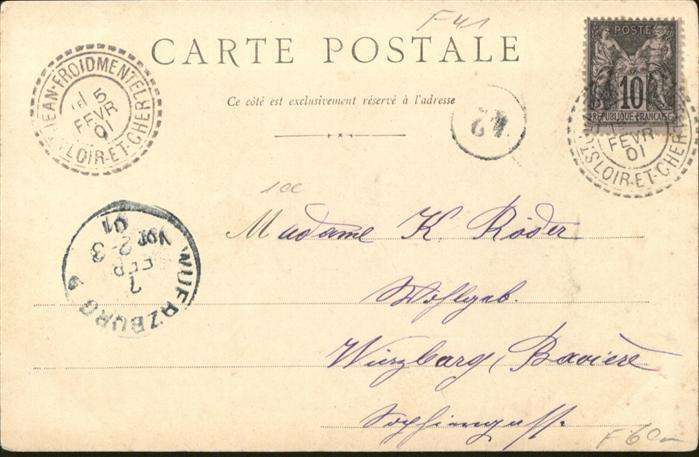 F-41
CARTE POSTALE
Ce côté est exclusivement réservé à l'adresse
POSTE
10
REPUBLIQUE FRANÇAISE
JEAN-FROIDMENTEL
5
FEVR
01
LOIR-ET-CHER
FEVR
01
LOIR-ET-CHER
42
Madame K. Röder
Wohlgeb.
Würzburg, Bavière
Sophiengasse
WUERZBURG
7
FEB
2-3
Vor.
01